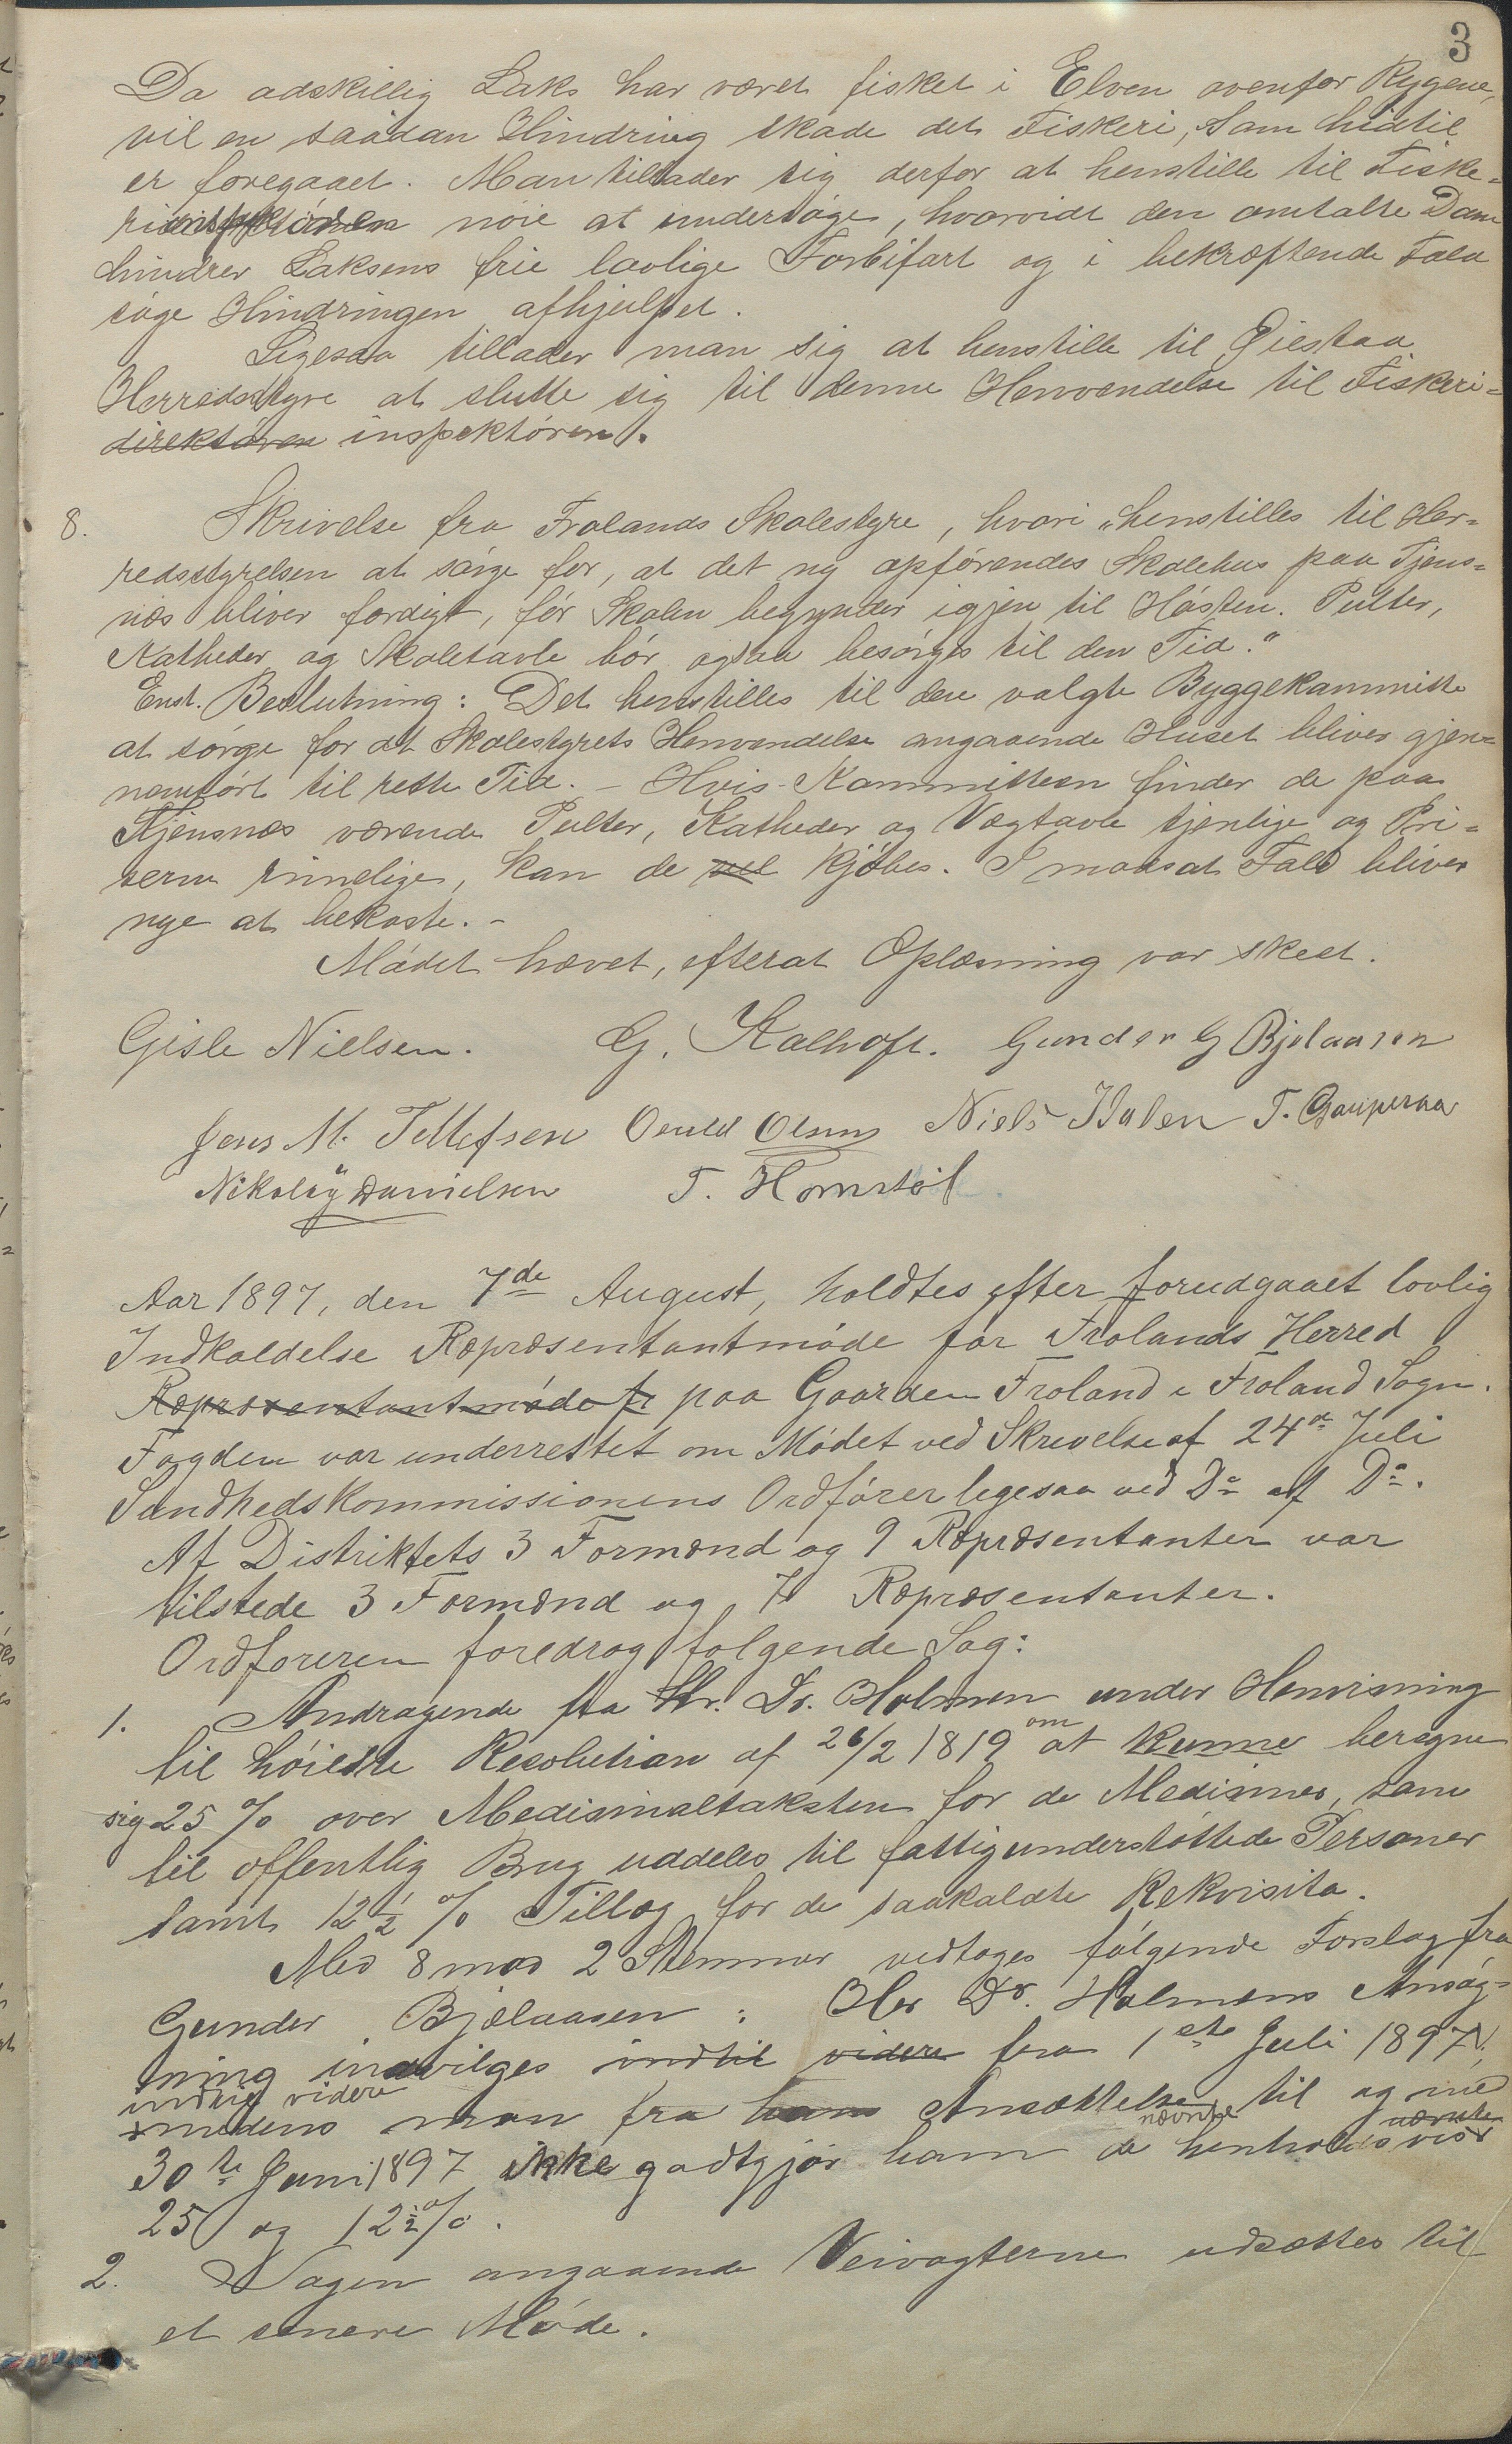 3
Da adskillig Laks har været fisket i Elven ovenfor Rygene,
vil en saadan Hindring skade det Fiskeri, som hidtil
er foregaaet. Man tillader sig derfor at henstille til Fiske-
riinspektøren nøie at undersøge, hvorvidt den omtalte Dam
hindrer Laksens frie lovlige Forbifart og i bekræftende Fald
søge Hindringen afhjulpet.
Ligesaa tillader man sig at henstille til Øiestad
Herredsstyre at slutte sig til denne Henvendelse til Fiskeri-
direktøren inspektøren.
8. Skrivelse fra Frolands Skolestyre, hvori „henstilles til Her-
redsstyrelsen at sørge for, at det ny opførendes Skolehus paa Tjens-
næs bliver færdigt, før Skolen begynder igjen til Høsten. Pulter,
Katheder og Skoletavle bør ogsaa besørges til den Tid."
Enst. Beslutning: Det henstilles til den valgte Byggekommitte
at sørge for at Skolestyrets Henvendelse angaaende Huset bliver gjen-
nemført til rette Tid. - Hvis Kommitteen finder de paa
Tjensnæs værende Pulter, Katheder og Vægtavle tjenlige og Pri-
serne rimelige, kan de vel kjøbes. I modsat Fald bliver
nye at bekoste. -
Mødet hævet, efterat Oplæsning var skeet.
Gisle Nielsen. G. Kalhoft. Gunder G Bjelaasen
Jens M. Tellefsen Oeuld Olsen Niels Dalen T. Gauperaa
Nikolay Danielsen T. Homstøl
Aar 1897, den 7de August, holdtes efter forudgaaet lovlig
Indkaldelse Repræsentantmøde for Frolands Herred
Repræsentantmøde fr paa Gaarden Froland i Froland Sogn.
Fogden var underrettet om Mødet ved Skrivelse af 24de Juli
Sundhedskommissionens Ordfører legesaa ved Do af Do.
Af Distriktets 3 Formænd og 9 Repræsentanter var
tilstede 3 Formænd og 7 Repræsentanter.
Ordføreren foredrog følgende Sag:
1. Andragende fra Hr. Dr. Holmen under Henvisning
til høieste Resolution af 26/2 1819 om at kunne beregne
sig 25 % over Medisinaltaksten for de Medisiner, som
til offentlig Brug uddeles til fattigunderstøttede Personer
samt 12 1/2 % Tillæg for de saakaldte Rekvisita.
Med 8 mod 2 Stemmer vedtoges følgende Forslag fra
Gunder Bjelaasen: Her Dr. Holmens Ansøg-
ning indvilges indtil videre fra 1ste Juli 1897,
indtil videre
imedens man fra hans Ansættelse til og med
30te Juni 1897 ikke godtgjør ham de nævnte henholdsvis nævnte
25 og 12 1/2 %.
2. Sagen angaaende Veivogterne udsættes til
et senere Møde.